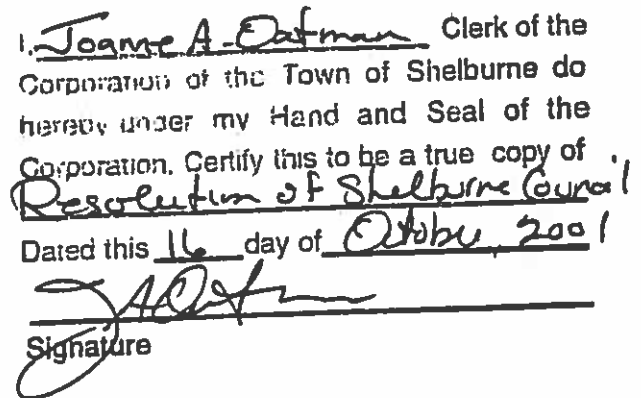 I, Joanne A. Oatman Clerk of the
Corporation of the Town of Shelburne do
hereby under my Hand and Seal of the
Corporation, Certify this to be a true copy of
Resolution of Shelburne Council
Dated this 16 day of October, 2001
JA Oatman
Signature